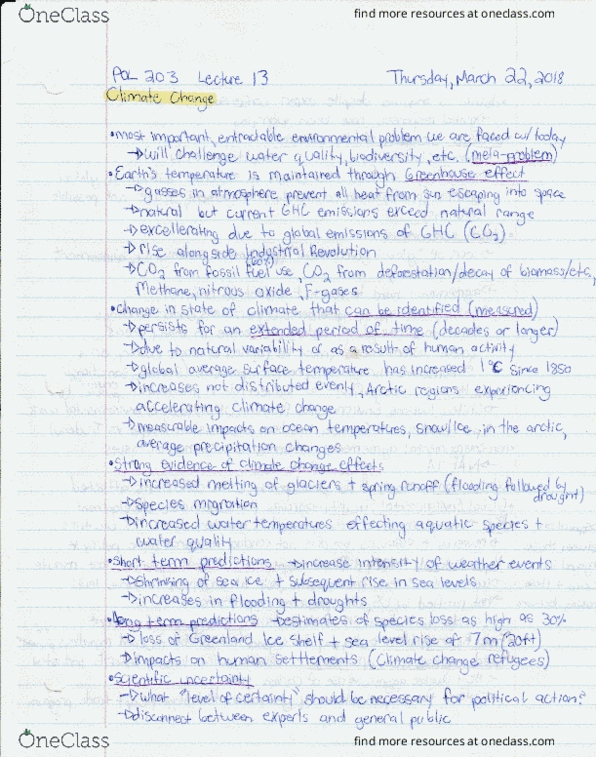 OneClass
find more resources at oneclass.com
POL 203 Lecture 13 Thursday, March 22, 2018
Climate Change
•most important, entractable environmental problem we are faced w/ today
→will challenge water quality, biodiversity, etc. (meta-problem)
•Earth's temperature is maintained through Greenhouse effect
→gasses in atmosphere prevent all heat from sun escaping into space
→natural but current GHG emissions exceed natural range
→excellerating due to global emissions of GHG (CO2)
→rise alongside Industrial Revolution
→CO2 from fossil fuel use, CO2 from deforestation/decay of biomass/etc,
Methane, nitrous oxide, F-gases
•Change in state of climate that can be identified (measured)
→persists for an extended period of time (decades or longer)
→due to natural variability or as a result of human activity
→global average surface temperature has increased 1°C since 1850
→increases not distributed evenly, Arctic regions experiencing
accelerating climate change
→measurable impacts on ocean temperatures, snow/ice in the arctic,
average precipitation changes
•Strong evidence of climate change effects
→increased melting of glaciers + spring runoff (flooding followed by
drought)
→species migration
→increased water temperatures effecting aquatic species +
water quality
•Short term predictions →increase intensity of weather events
→shrinking of sea ice + subsequent rise in sea levels
→increases in flooding + droughts
•Long term predictions →estimates of species loss as high as 30%
→loss of Greenland Ice Shelf + sea level rise of 7m (20ft)
→impacts on human settlements (climate change refugees)
•Scientific uncertainty
→what "level of certainty" should be necessary for political action?
→disconnect between experts and general public
OneClass
find more resources at oneclass.com